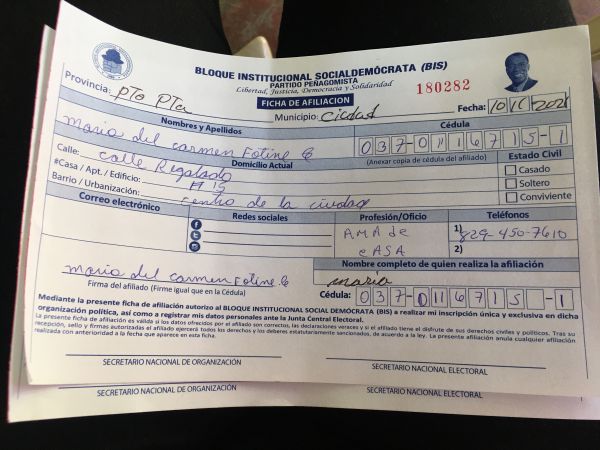 BLOQUE INSTITUCIONAL SOCIALDEMÓCRATA (BIS)
PARTIDO PEÑAGOMISTA
Libertad, Justicia, Democracia y Solidaridad
180282
FICHA DE AFILIACION
Provincia: Pto Pta
Municipio: Ciudad
Fecha: 2021
Nombres y Apellidos
Cédula
maria del carmen Fotine C
037-0116715-1
(Anexar copia de cédula del afiliado)
Domicilio Actual
Estado Civil
Calle: calle Regalado
Casado
#Casa / Apt. / Edificio: # 15
Soltero
Barrio / Urbanización: centro de la ciudad
Conviviente
Correo electrónico
Redes sociales
Profesión/Oficio
Teléfonos
AMA de
CASA
1) 829-450-7610
2)
Nombre completo de quien realiza la afiliación
maria del carmen Fotine C
maria
Firma del afiliado (Firme igual que en la Cédula)
Cédula: 037-0116715-1
Mediante la presente ficha de afiliación autorizo al BLOQUE INSTITUCIONAL SOCIAL DEMÓCRATA (BIS) a realizar mi inscripción única y exclusiva en dicha
organización política, así como a registrar mis datos personales ante la Junta Central Electoral.
La presente ficha de afiliación es valida si los datos ofrecidos por el afiliado son correctos, las declaraciones veraces y si el afiliado tiene el disfrute de sus derechos civiles y políticos. Tras su
recepción, sello y firmas autorizadas el afiliado ejercerá todos los derechos y los deberes estatutariamente sancionados, de acuerdo a la ley. La presente afiliación anula cualquier afiliación
realizada con anterioridad a la fecha que aparece en esta ficha.
SECRETARIO NACIONAL DE ORGANIZACIÓN
SECRETARIO NACIONAL ELECTORAL
SECRETARIO NACIONAL DE ORGANIZACIÓN
SECRETARIO NACIONAL ELECTORAL